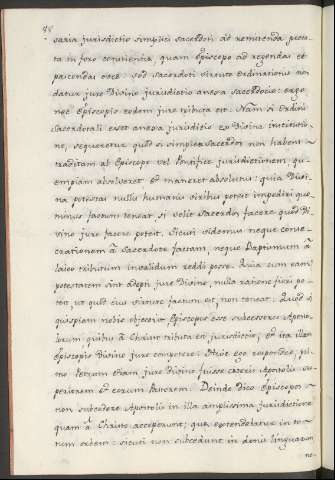 48
saria jurisdictio simplici Sacerdoti ad remittenda pecca-
ta in foro conscientiæ, quam Episcopo ad regendas et
pascendas oves: sed Sacerdoti virtute Ordinationis non
datur jure Divino jurisdictio anexa Sacerdotio: ergo
nec Episcopis eodem jure tributa est. Nam si Ordini
Sacerdotali esset anexa jurisditio ex Divina institutio-
ne, sequeretur quod si simplex Sacerdos non habens
traditam ab Episcopo vel Pontifice jurisdictionem qu-
empiam absolveret et maneret absolutus: quia Divi-
na potestas nullis humanis viribus potest impediri quo
minus factum teneat si velit Sacerdos facere quod Di-
vino jure facere potest. Sicuti videmus neque conse-
crationem à Sacerdote factam, neque Baptismum à
laico tributum invalidum reddi posse. Quia cum eam
potestatem sint adepti jure Divino, nulla ratione fieri po-
test, ut quod eius virtute factum est, non teneat. Quod si
quispiam nobis objecerit Episcopos esse successores Aposto-
lorum, quibus à Christo tributa est jurisdictio; et ita illam
Episcopis Divino jure competere. Huic ego respondeo, pri-
mo Petrum etiam jure Divino fuisse cæteris Apostolis su-
periorem et eorum Pastorem. Deinde dico Episcopos
non succedere Apostolis in illa amplissima jurisdictione
quam à Christo acceperunt; quæ extendebatur in to-
tum orbem: sicuti non succedunt in donis linguarum
ne-